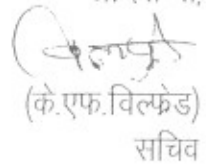 (के.एफ.विल्फ्रेड)
सचिव